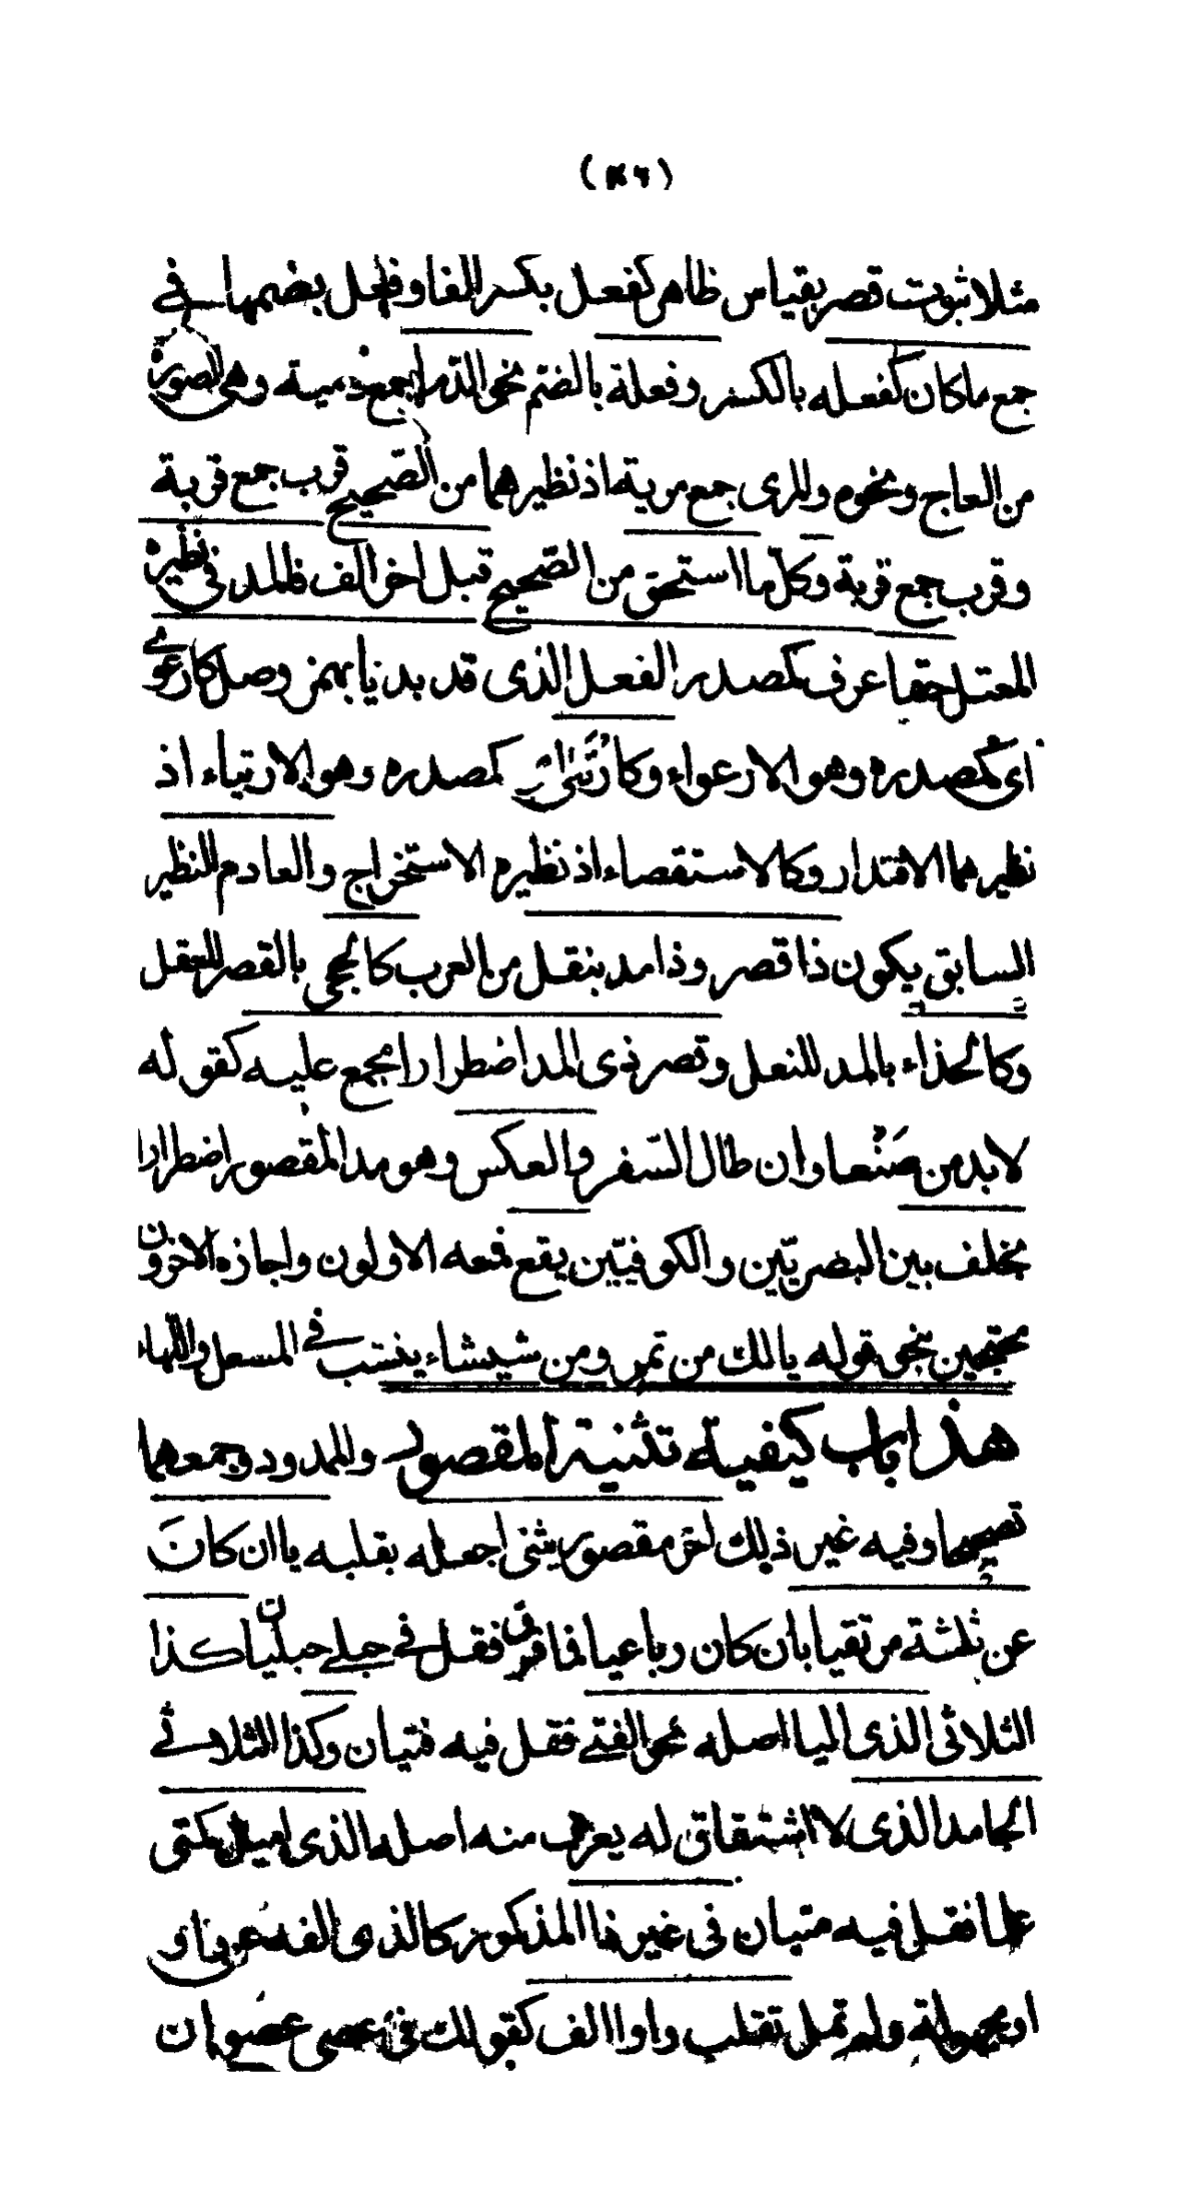 مثلا ثبوت قصر بقياس ظاهر كفعل بكسر الفا وفعل بضمها في
جمع ما كان كفعله بالكسر وفعلة بالضم نحو الدمى جمع دمية وهي الصورة
من العاج ونحوه والمرى جمع مرية اذ نظيرهما من الصحيح قرب جمع قربة
وقرب جمع قربة وكل ما استحق من الصحيح قبل اخر الف فالمد في نظيره
المعتل حتما عرف كمصدر الفعل الذى قد بديا بهمز وصل كارعوى
اى كمصدره وهو الارعواء وكارتئى كمصدره وهو الارتياء اذ
نظيرهما الاقتدار وكالاستقصاء اذ نظيره الاستخراج والعادم النظير
السابق يكون ذا قصر وذا مد بنقل من العرب كالحجى بالقصر للعقل
وكالحذاء بالمد للنعل وقصر ذى المد اضطرارا مجمع عليه كقوله
لا بد من صنعا وان طال السفر والعكس وهو مد المقصور اضطرارا
بخلف بين البصريين والكوفيين يقع فمنعه الاولون واجازه الاخرون
محتجين بنحو قوله يا لك من تمر ومن شيشاء ينشب في المسعل واللهاء
هذا باب كيفية تثنية المقصور والمدود وجمعهما
تصحيحا وفيه غير ذلك اخر مقصور يثنى اجعله بقلبه يا ان كان
عن ثلثة مرتقيا بان كان رباعيا فما فوق فقل في حبلى حبليان كذا
الثلاثى الذى اليا اصله نحو الفتى فقل فيه فتيان وكذا الثلاثي
الجامد الذى لا اشتقاق له يعرف منه اصله الذى اميل كمتى
علما فقل فيه متيان فى غير ذا المذكور كالذى الفه عن واو
او مجهولة ولم تمل تقلب واوا الالف كقولك فى عصى عصوان